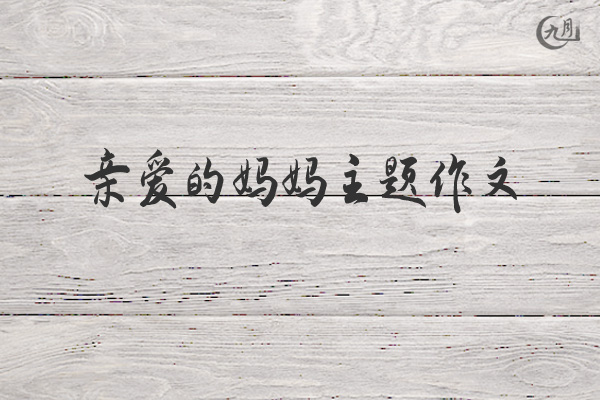 九月
亲爱的妈妈主题作文